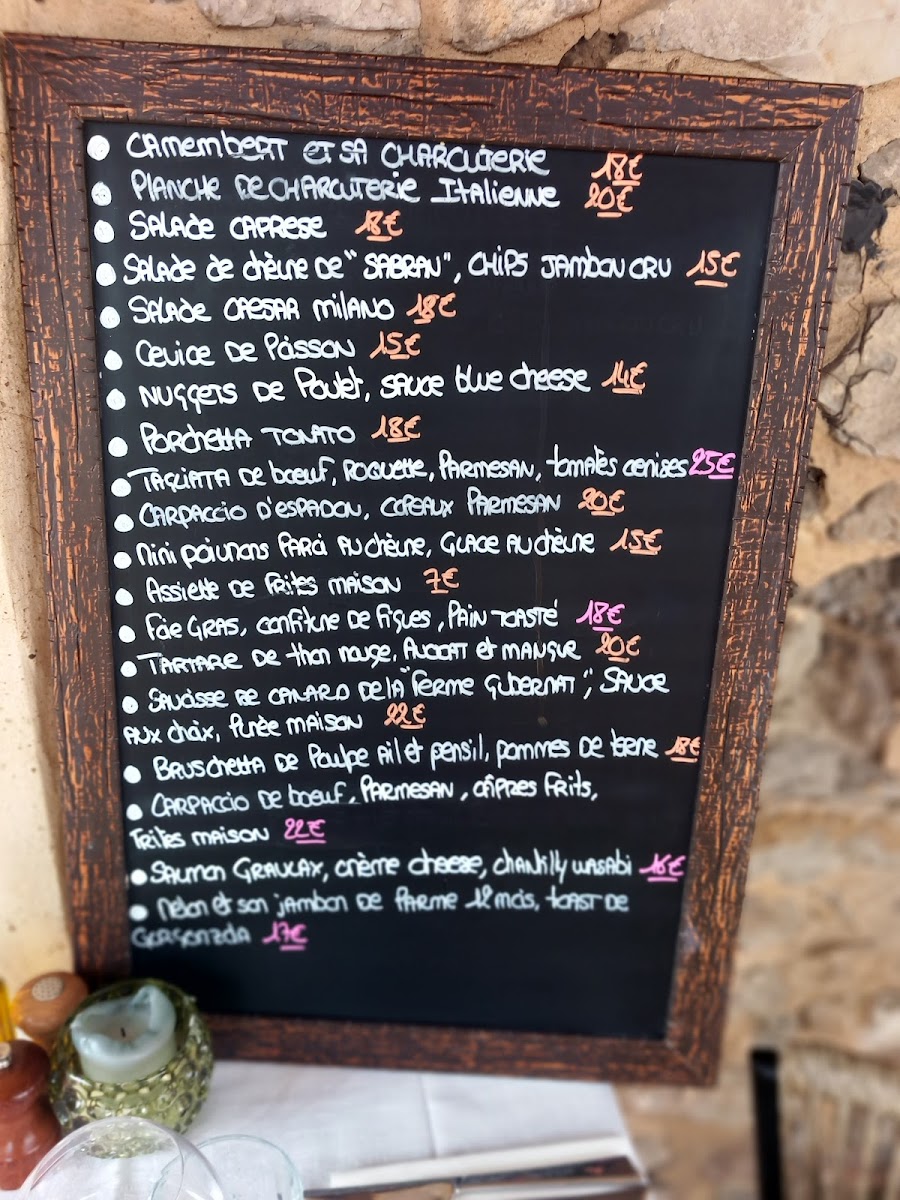 CAMEMBERT ET SA CHARCUTERIE 18€
PLANCHE DE CHARCUTERIE ITALIENNE 20€
SALADE CAPRESE 18€
SALADE de chèvre DE "SABRAN", CHIPS JAMBON CRU 15€
SALADE CAESAR MILANO 18€
Cevice DE Poisson 15€
NUGGETS DE Poulet, SAUCE blue cheese 14€
PORCHETTA TONATO 18€
TAGLIATA DE bœuf, ROQUETTE, PARMESAN, tomates cerises 25€
CARPACCIO D'ESPADON, COPEAUX PARMESAN 20€
Mini poivrons FARCI AU chèvre, GLACE AU chèvre 15€
Assiette DE FRITES MAISON 7€
Foie GRAS, confiture DE Figues, PAIN TOASTÉ 18€
TARTARE DE thon rouge, AVOCAT et MANGUE 20€
SAUCISSE DE CANARD DE LA "FERME GUBERNAT", SAUCE
AUX choix, Purée MAISON 22€
BRUSCHETTA DE Poulpe Ail et persil, pommes DE terre 18€
CARPACCIO DE boeuf, PARMESAN, câpres Frits,
Frites MAISON 22€
SAUMON GRAVLAX, crème cheese, chantilly WASABI 16€
Melon et son jambon DE PARME 12 mois, TOAST DE
GORGONZOLA 17€